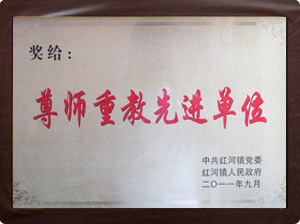 奖给：
尊师重教先进单位
中共红河镇党委
红河镇人民政府
二〇一一年九月